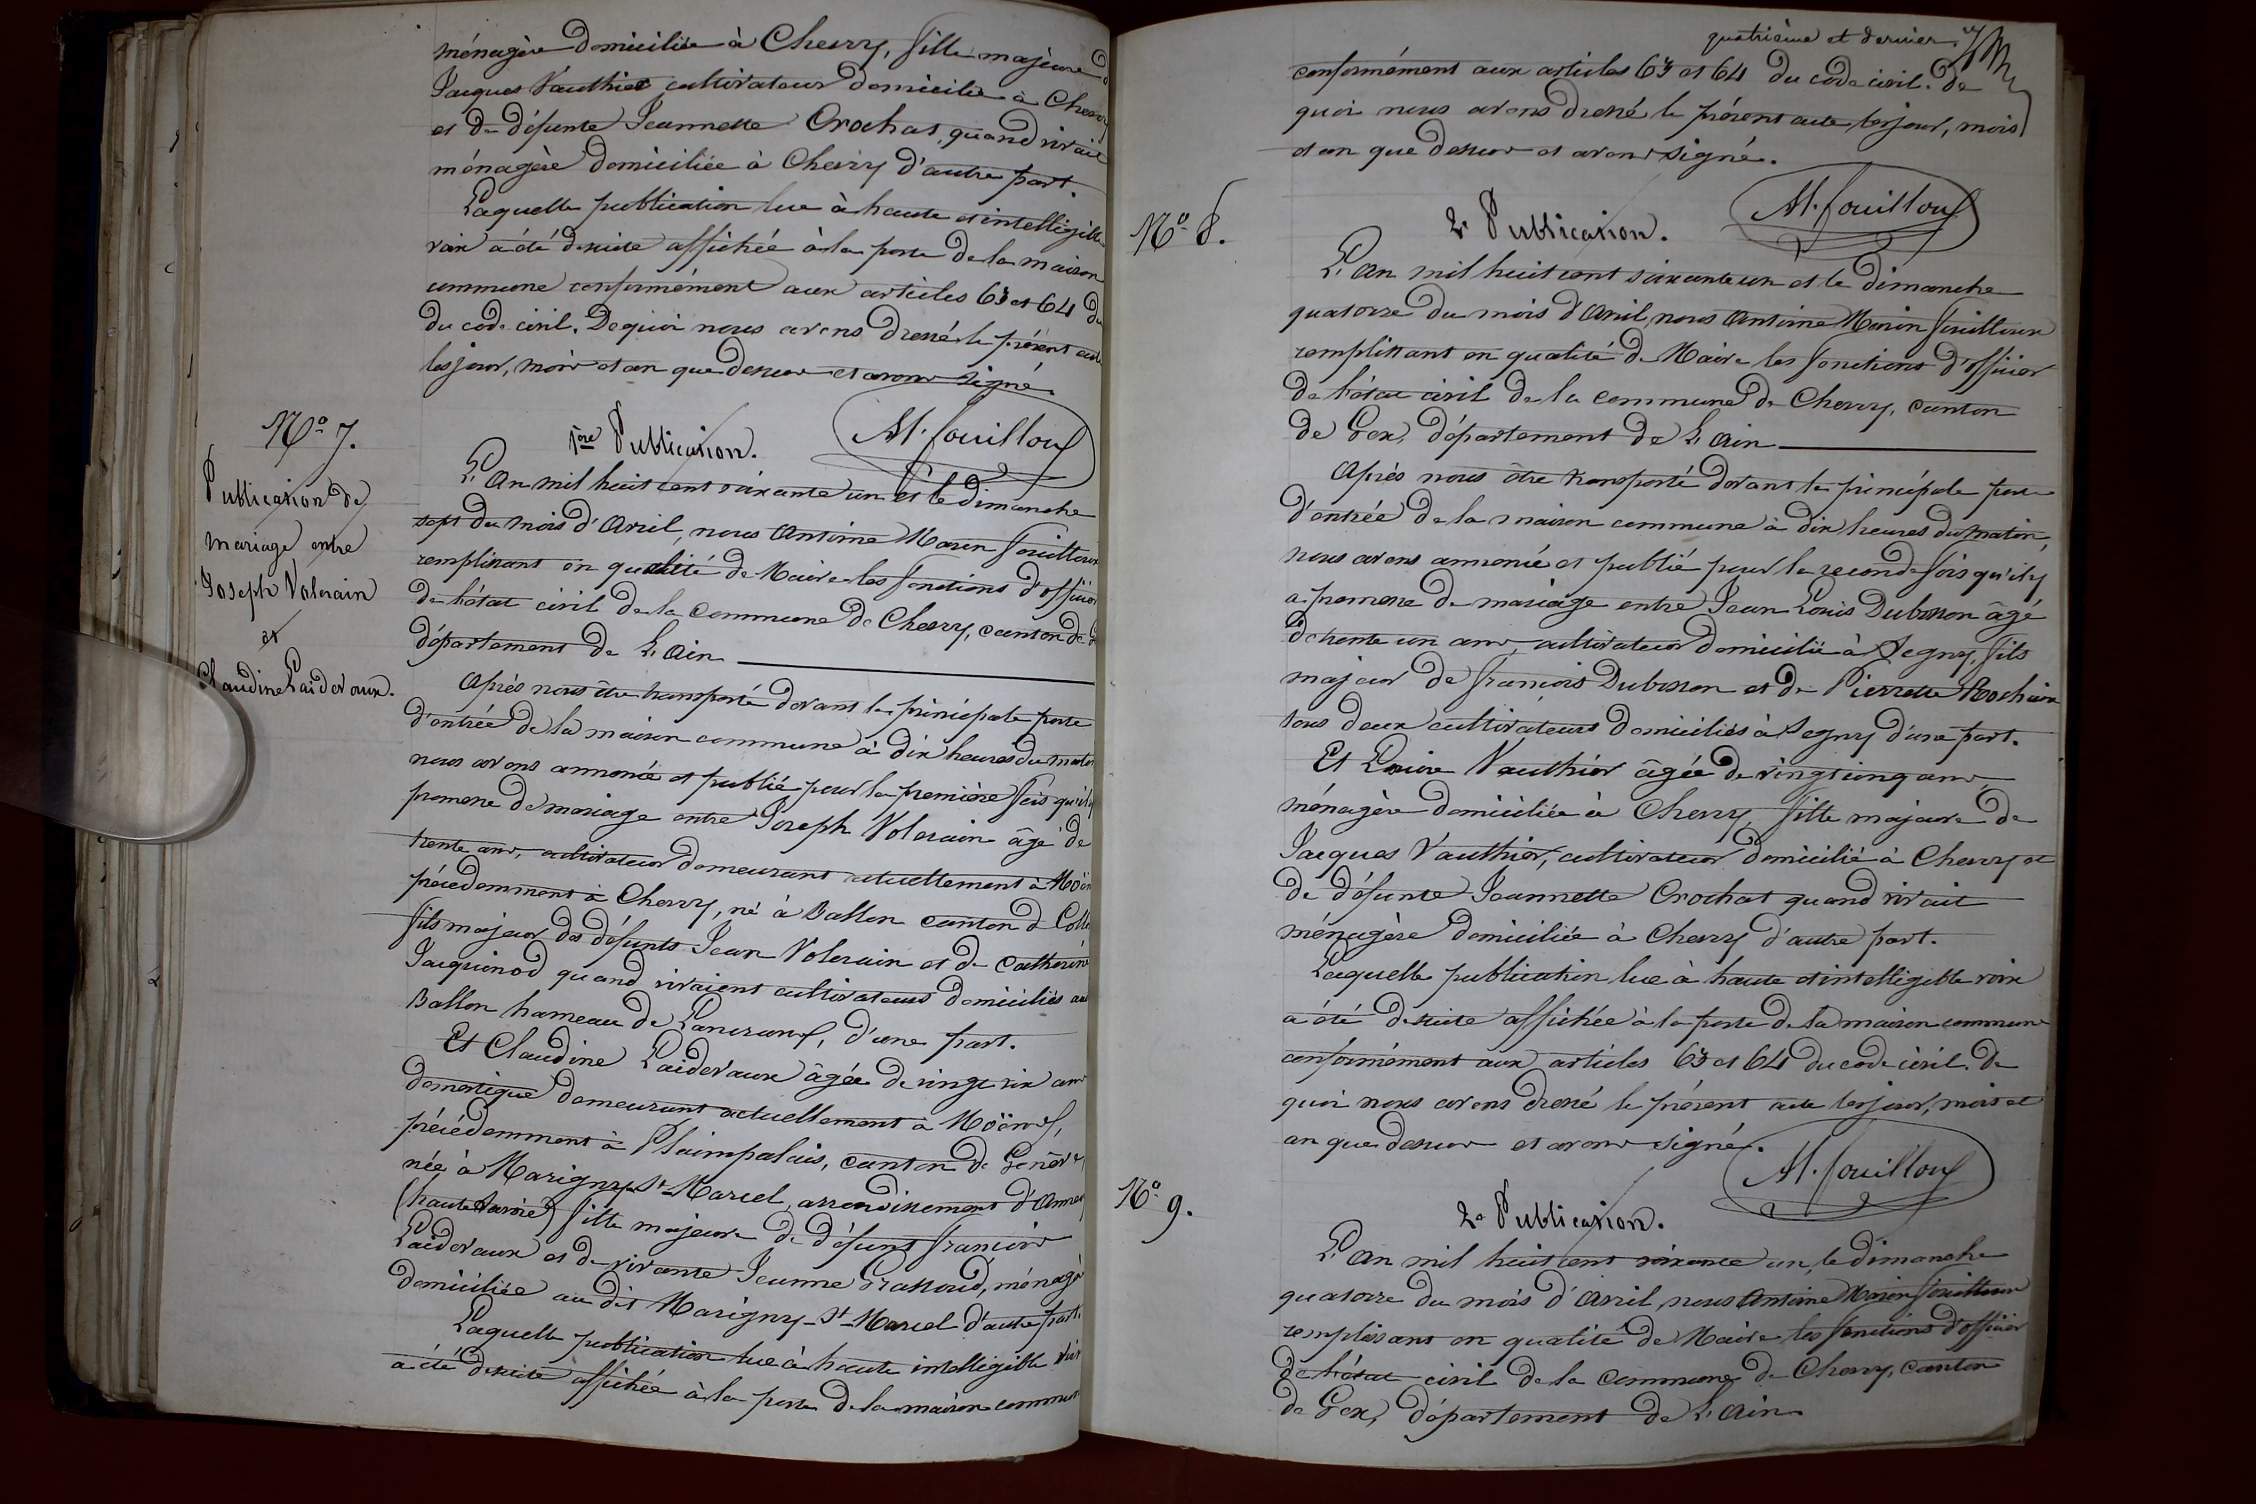 ménagère domiciliée à Chevry, fille majeure de
Jacques Vauthier cultivateur domicilié à Chevry
et de défunte Jeannette Crochat, quand vivait
ménagère domiciliée à Chevry d'autre part.
Laquelle publication lue à haute et intelligible
voix a été de suite affichée à la porte de la maison
commune conformément aux articles 63 et 64 du
du code civil. De quoi nous avons dressé le présent acte
les jour, mois et an que dessus et avons signé.
M. fouilloux
Nº 7.
Publication de
mariage entre
Joseph Volerain
et
Claudine Laidevaux.
1ère Publication.
L'an mil huit cent soixante un et le dimanche
sept du mois d'avril, nous Antoine Marin fouilloux
remplissant en qualité de Maire les fonctions d'officier
de l'état civil de la commune de Chevry, canton de
département de L'ain
Après nous être transporté devant la principale porte
d'entrée de la maison commune à dix heures du matin
nous avons annoncé et publié pour la première fois qu'il y
promesse de mariage entre Joseph Volerain âgé de
trente ans, cultivateur demeurant actuellement à Moëns
précédemment à Chevry, né à Ballon canton de Coll
fils majeur des défunts Jean Volerain et de Catherine
Jacquinod quand vivaient cultivateurs domiciliés au
Ballon hameau de Lancrans, d'une part.
Et Claudine Laidevaux âgée de vingt six ans
domestique demeurant actuellement à Moëns,
précédemment à Plaimpalais, canton de Genève,
née à Marigny-St-Marcel, arrondissement d'Annecy
(haute Savoie) fille majeure de défunt françois
Laidevaux et de vivante Jeanne Grassoud, ménagère
domiciliée au dit Marigny-St-Marcel d'autre part.
Laquelle publication lue à haute intelligible voix
a été de suite affichée à la porte de la maison commune
quatrième et dernier.
conformément aux articles 63 et 64 du code civil. de
quoi nous avons dressé le présent acte les jour, mois
et an que dessus et avons signé.
M. fouilloux
Nº 8.
2e Publication.
L'an mil huit cent soixante un et le dimanche
quatorze du mois d'avril, nous Antoine Marin fouilloux
remplissant en qualité de Maire les fonctions d'officier
de l'état civil de la commune de Chevry, canton
de Gex, département de L'ain
Après nous être transporté devant la principale porte
d'entrée de la maison commune à dix heures du matin,
nous avons annoncé et publié pour la seconde fois qu'il y
a promesse de mariage entre Jean Louis Dubosson âgé
de trente un ans, cultivateur domicilié à Segny, fils
majeur de françois Dubosson et de Pierrette Rochaix
tous deux cultivateurs domiciliés à Segny d'une part.
Et Louise Vauthier âgée de vingt cinq ans,
ménagère domiciliée à Chevry, fille majeure de
Jacques Vauthier, cultivateur domicilié à Chevry et
de défunte Jeannette Crochat quand vivait
ménagère domiciliée à Chevry d'autre part.
Laquelle publication lue à haute et intelligible voix
a été de suite affichée à la porte de la maison commune
conformément aux articles 63 et 64 du code civil. de
quoi nous avons dressé le présent acte les jour, mois et
an que dessus et avons signé.
M. fouilloux
Nº 9.
2e Publication.
L'an mil huit cent soixante un, le dimanche
quatorze du mois d'avril, nous Antoine Marin fouilloux
remplissant en qualité de Maire les fonctions d'officier
de l'état civil de la commune de Chevry, canton
de Gex, département de L'ain